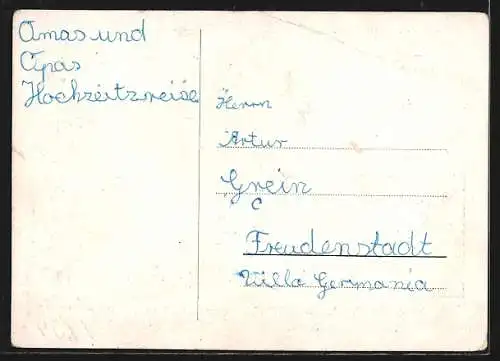 Omas und
Opas
Hochzeitzreise
Herrn
Artur
Grein
c
Freudenstadt
Villa Germania